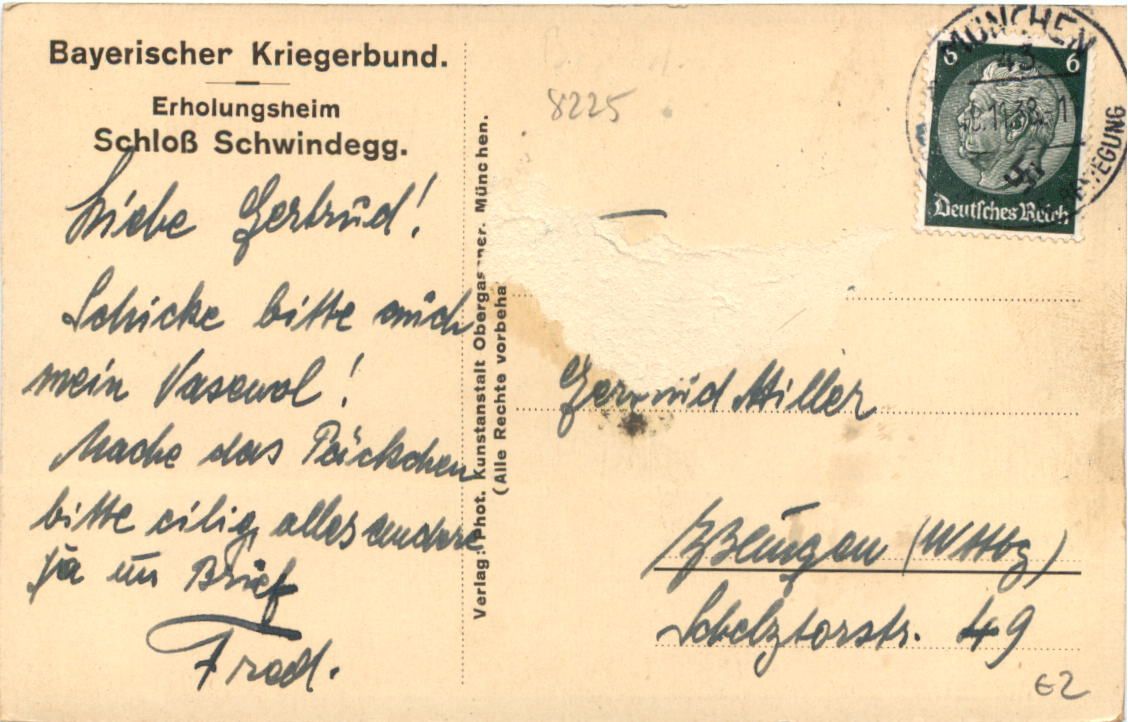 Bayerischer Kriegerbund.
Erholungsheim
Schloß Schwindegg.
Liebe Gertrud!
Schicke bitte auch
mein Vasenol!
Mache das Päckchen
bitte eilig, alles andere
ja im Brief
Fred.
Verlag: Phot. Kunstanstalt Obergassner. München.
(Alle Rechte vorbeha
8225
MÜNCHEN
43
.11.38. 1
6 6
Deutsches Reich
Gertrud Hiller
Eßlingen (Wttbg)
Schelztorstr. 49
€2